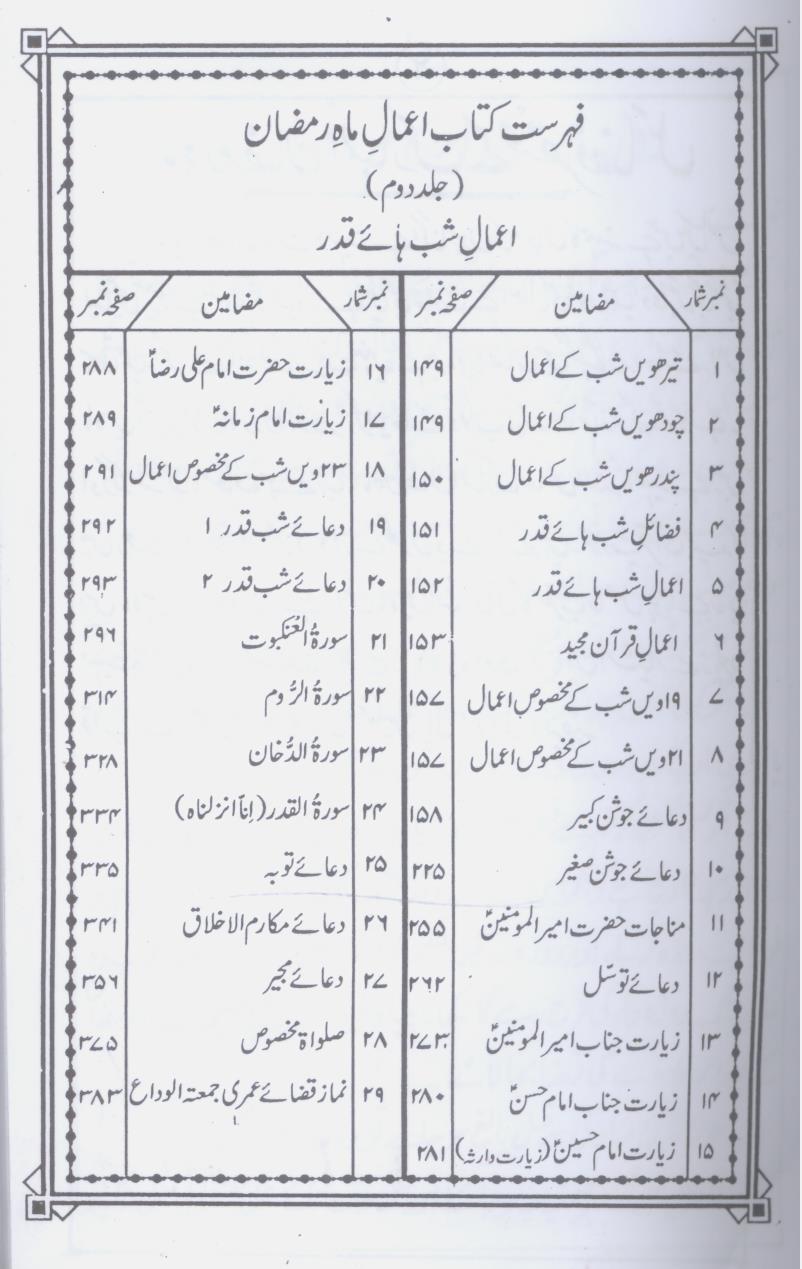 فہرست کتاب اعمالِ ماہِ رمضان
(جلد دوم)
اعمالِ شب ہائے قدر
نمبر شمار مضامین صفحہ نمبر
۱ تیرھویں شب کے اعمال ۱۴۹
۲ چودھویں شب کے اعمال ۱۴۹
۳ پندرھویں شب کے اعمال ۱۵۰
۴ فضائلِ شب ہائے قدر ۱۵۱
۵ اعمالِ شب ہائے قدر ۱۵۲
۶ اعمالِ قرآن مجید ۱۵۳
۷ ۱۹ویں شب کے مخصوص اعمال ۱۵۷
۸ ۲۱ویں شب کے مخصوص اعمال ۱۵۷
۹ دعائے جوشن کبیر ۱۵۸
۱۰ دعائے جوشن صغیر ۲۲۵
۱۱ مناجات حضرت امیر المومنینؑ ۲۵۵
۱۲ دعائے توسّل ۲۶۲
۱۳ زیارت جناب امیر المومنینؑ ۲۷۳
۱۴ زیارت جناب امام حسنؑ ۲۸۰
۱۵ زیارت امام حسینؑ (زیارت وارثہ) ۲۸۱
نمبر شمار مضامین صفحہ نمبر
۱۶ زیارت حضرت امام علی رضاؑ ۲۸۸
۱۷ زیارت امام زمانہؑ ۲۸۹
۱۸ ۲۳ویں شب کے مخصوص اعمال ۲۹۱
۱۹ دعائے شب قدر ۱ ۲۹۲
۲۰ دعائے شب قدر ۲ ۲۹۳
۲۱ سورۃُ العنکبوت ۲۹۶
۲۲ سورۃُ الرُّوم ۳۱۴
۲۳ سورۃُ الدُّخان ۳۲۸
۲۴ سورۃُ القدر (اِنّا انزلناہ) ۳۳۴
۲۵ دعائے توبہ ۳۳۵
۲۶ دعائے مکارم الاخلاق ۳۴۱
۲۷ دعائے مجیر ۳۵۶
۲۸ صلواۃ مخصوص ۳۷۵
۲۹ نماز قضائے عمری جمعتہ الوداع ۳۸۳